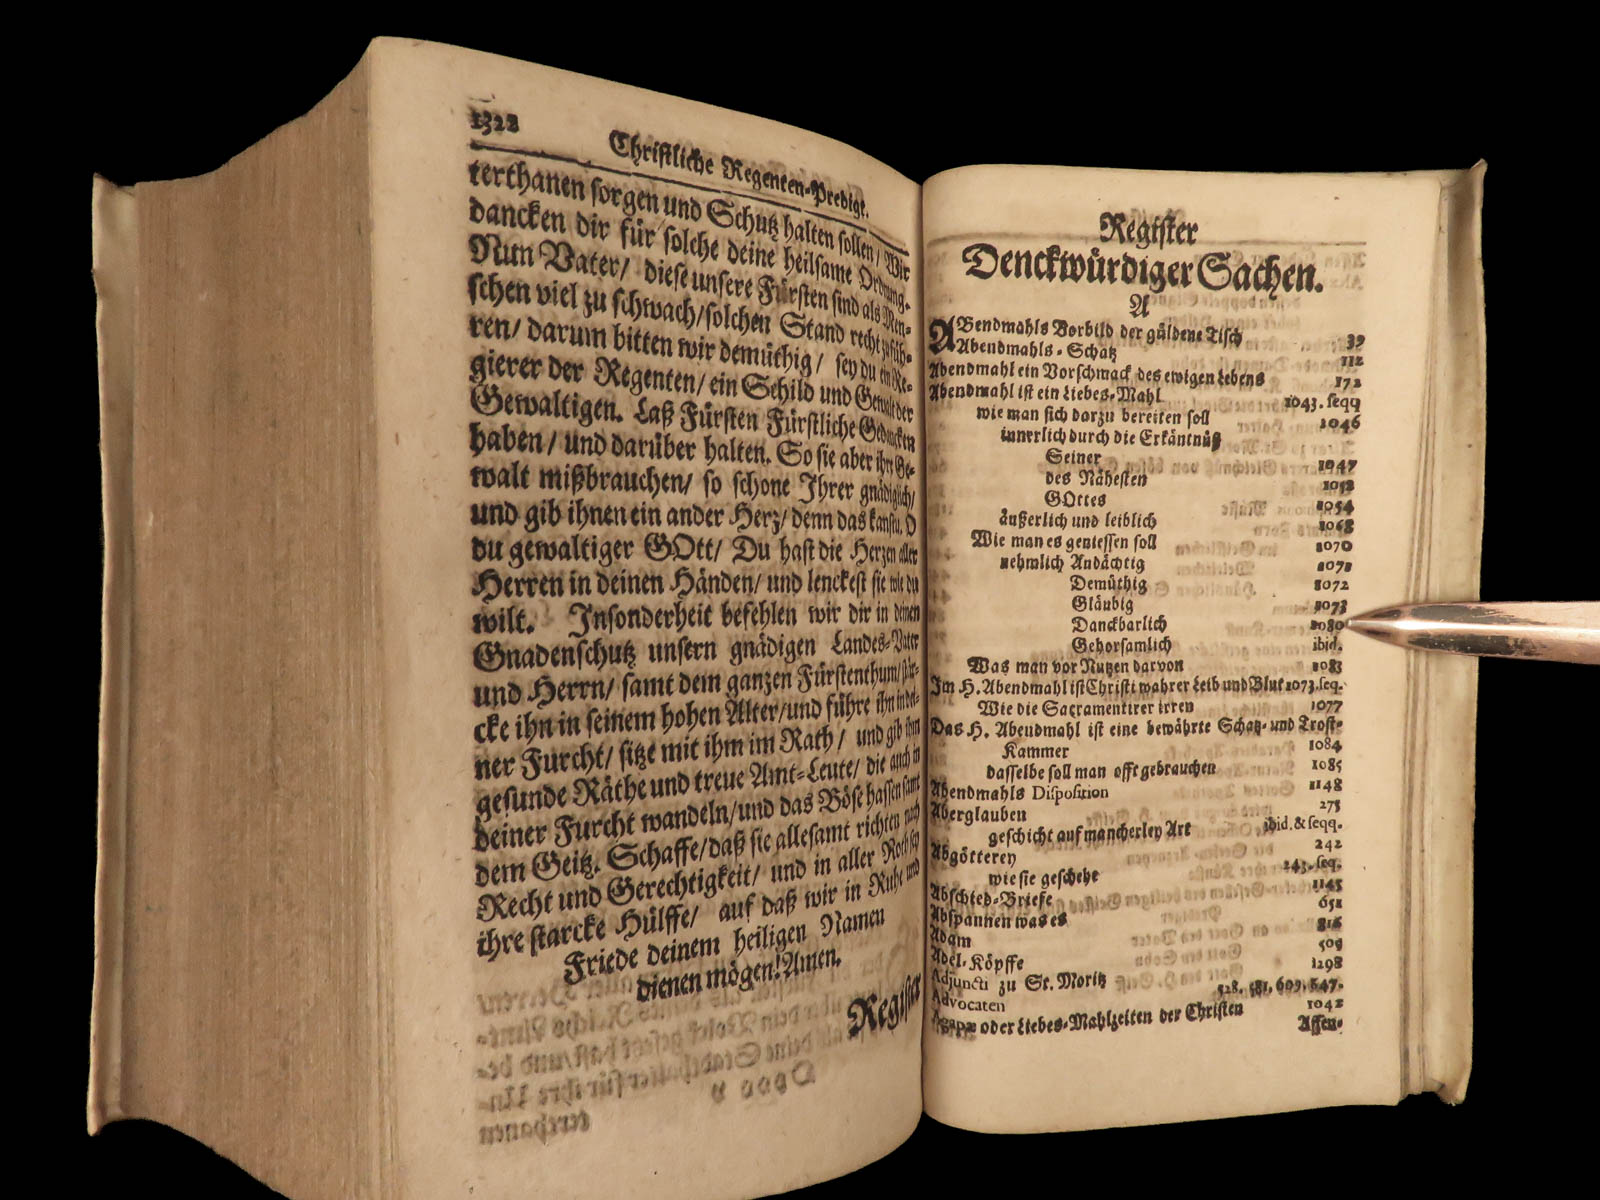 1322
Christliche Regenten-Predigt.
terthanen sorgen und Schutz halten sollen/ Wir
dancken dir für solche deine heilsame Ordnung.
Nun Vater/ diese unsere Fürsten sind als Men-
schen viel zu schwach/solchen Stand recht zu füh-
ren/ darum bitten wir demüthig/ sey du ein Re-
gierer der Regenten/ ein Schild und Gewalt der
Gewaltigen. Laß Fürsten Fürstliche Gedancken
haben/ und darüber halten. So sie aber ihr Ge-
walt mißbrauchen/ so schone Ihrer gnädiglich/
und gib ihnen ein ander Herz/ denn das kanstu. O
du gewaltiger GOtt/ Du hast die Herzen aller
Herren in deinen Händen/ und lenckest sie wie du
wilt. Insonderheit befehlen wir dir in deinen
Gnadenschutz unsern gnädigen Landes-Vater
und Herrn/ samt dem ganzen Fürstenthum/ stär-
cke ihn in seinem hohen Alter/und führe ihn in dei-
ner Furcht/ sitze mit ihm im Rath/ und gib ihm
gesunde Räthe und treue Amt-Leute/ die auch in
deiner Furcht wandeln/und das Böse hassen samt
dem Geitz. Schaffe/daß sie allesamt richten nach
Recht und Gerechtigkeit/ und in aller Noth sey
ihre starcke Hülffe/ auf daß wir in Ruhe und
Friede deinem heiligen Namen
dienen mögen! Amen.
Register
Register
Denckwürdiger Sachen.
A
ABendmahls Vorbild der güldene Tisch 39
Abendmahls-Schatz 112
Abendmahl ein Vorschmack des ewigen Lebens 172
Abendmahl ist ein Liebes-Mahl 1043. seqq
wie man sich darzu bereiten soll 1046
innerlich durch die Erkäntnüß
Seiner 1047
des Nähesten 1052
GOttes 1054
äußerlich und leiblich 1068
Wie man es geniessen soll 1070
nehmlich Andächtig 1071
Demüthig 1072
Gläubig 1073
Danckbarlich 1080
Gehorsamlich ibid.
Was man vor Nutzen darvon 1083
Im H. Abendmahl ist Christi wahrer Leib und Blut 1073. seq.
Wie die Sacramentirer irren 1077
Das H. Abendmahl ist eine bewährte Schatz- und Trost-
Kammer 1084
dasselbe soll man offt gebrauchen 1085
Abendmahls Disposition 1148
Aberglauben 275
geschicht auf mancherley Art ibid. & seqq.
Abgötterey 242
wie sie geschehe 243. seq.
Abschied-Briefe 1145
Abspannen was es 651
Adam 816
Adel-Köpffe 509
Adjuncti zu St. Moritz 1298
Advocaten 528. 581. 609. 647.
Agapæ oder Liebes-Mahlzeiten der Christen 1042
Affen-